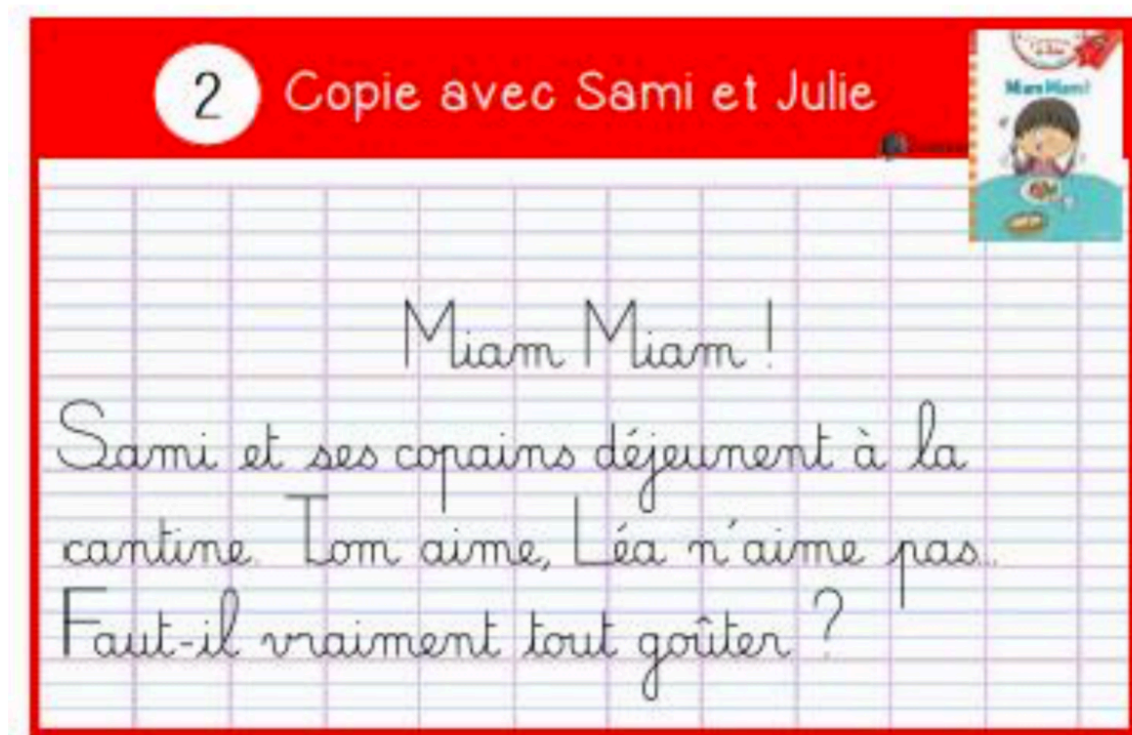 2 Copie avec Sami et Julie
Miam Miam !
Miam Miam !
Sami et ses copains déjeunent à la
cantine. Tom aime, Léa n'aime pas...
Faut-il vraiment tout goûter ?